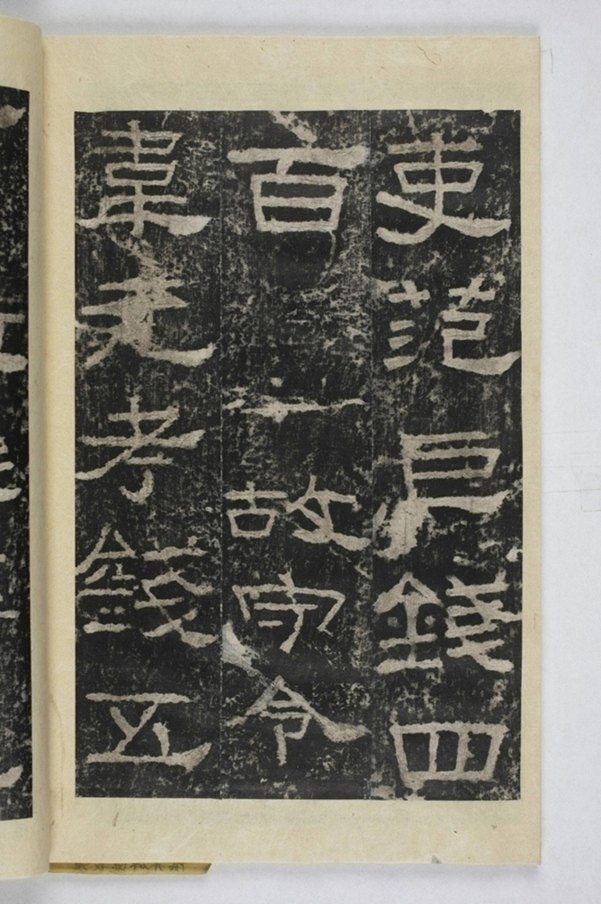 吏范巨錢四
百故守令
韋元考錢五